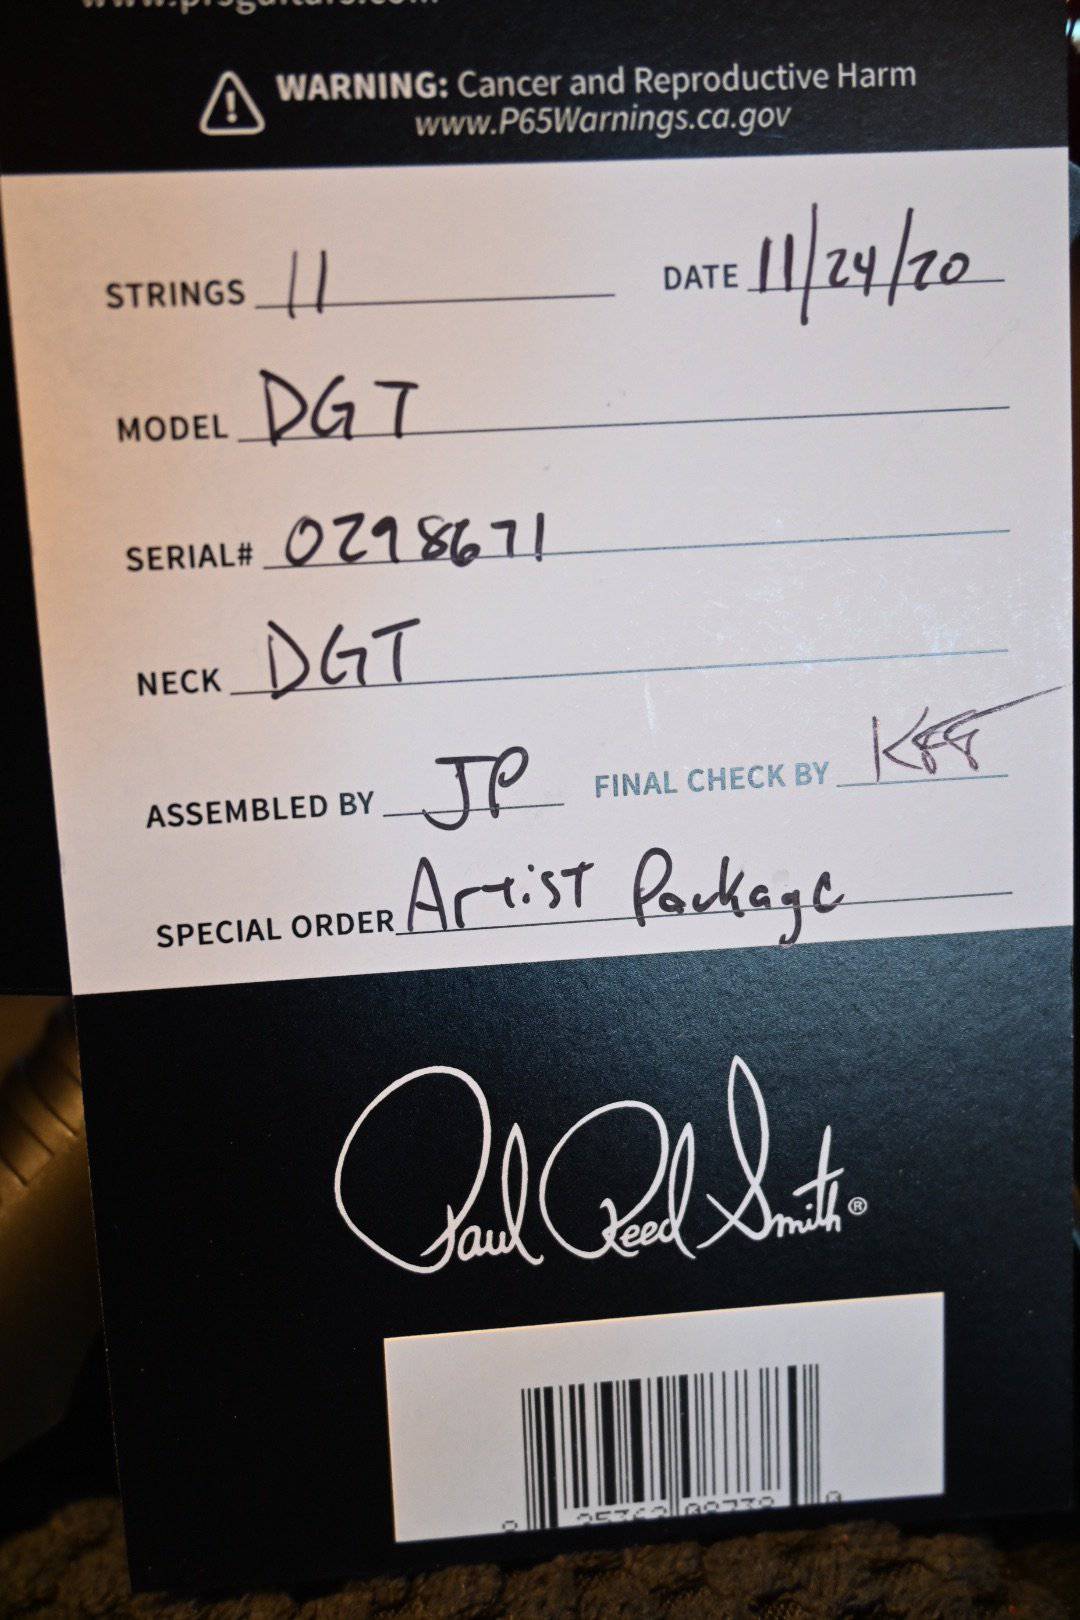 www.prsguitars.com
WARNING: Cancer and Reproductive Harm
www.P65Warnings.ca.gov
STRINGS 11 DATE 11/24/20
MODEL DGT
SERIAL# 0298671
NECK DGT
ASSEMBLED BY JP FINAL CHECK BY
SPECIAL ORDER Artist Package
Paul Reed Smith®